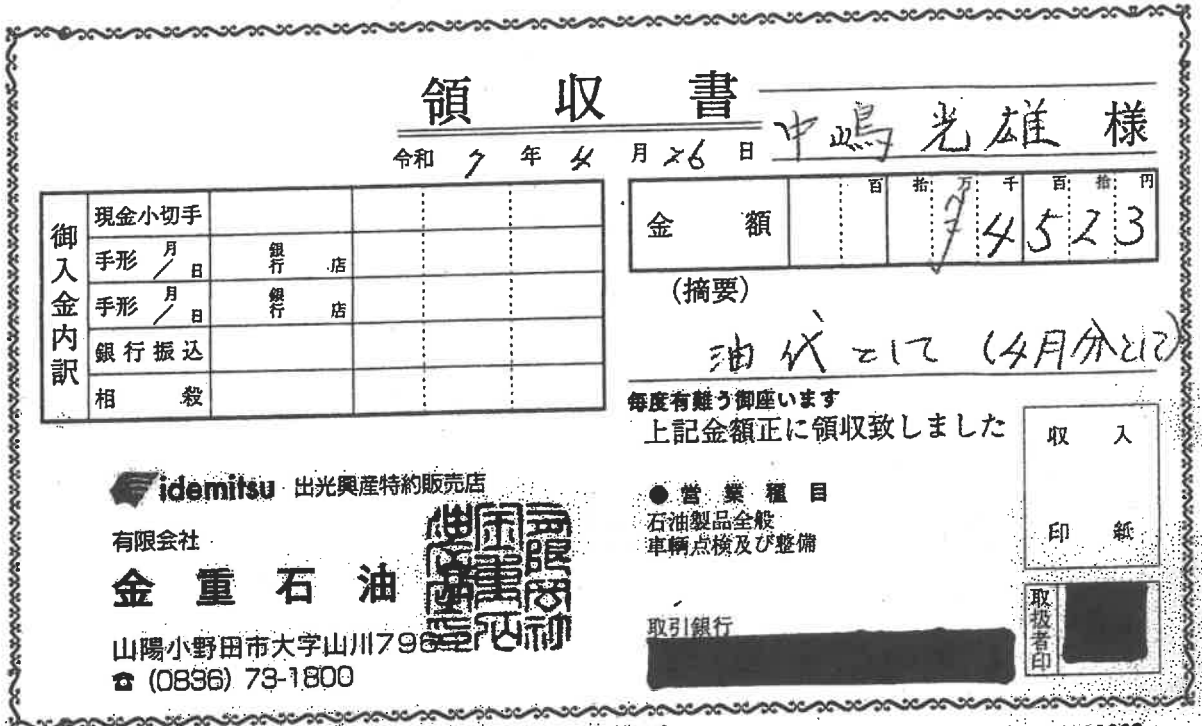 領収書
中嶋光雄 様
令和 7 年 4 月 26 日
御入金内訳
現金小切手
手形 月/日 銀行 店
手形 月/日 銀行 店
銀行振込
相殺
金額
百 拾 万 千 百 拾 円
4523
(摘要)
油代として (4月分として)
毎度有難う御座います
上記金額正に領収致しました
収入印紙
idemitsu 出光興産特約販売店
有限会社
金重石油
山陽小野田市大字山川796
☎ (0836) 73-1800
● 営業種目
石油製品全般
車輌点検及び整備
取引銀行
取扱者印